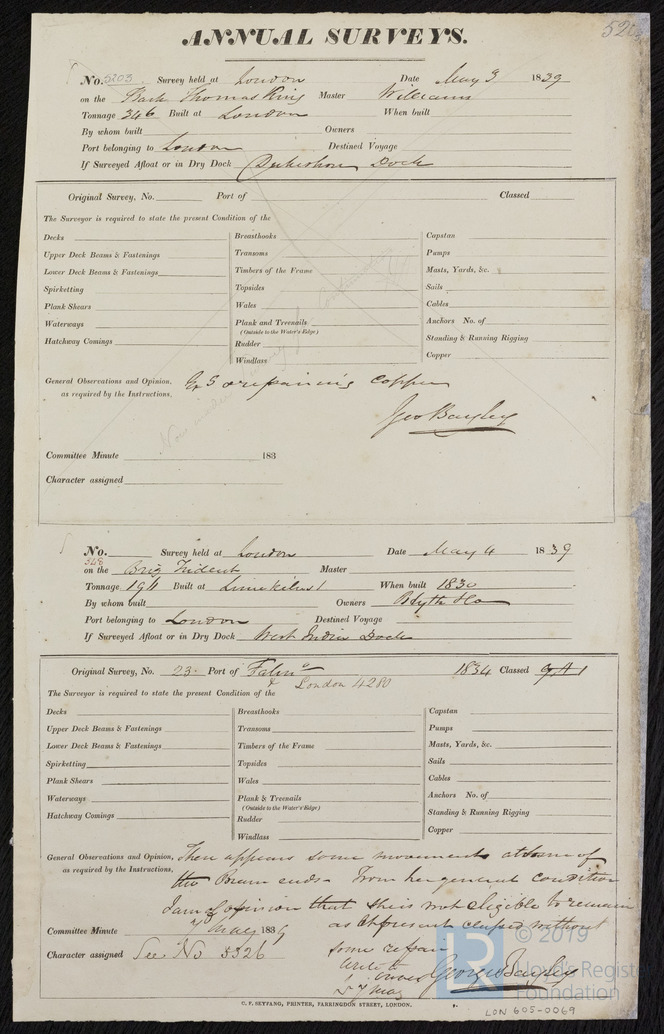 ANNUAL SURVEYS.
No. 5203 Survey held at London Date May 3 1839
on the Bark Thomas King Master Williams
Tonnage 346 Built at London When built
By whom built Owners
Port belonging to London Destined Voyage
If Surveyed Afloat or in Dry Dock Dock
Original Survey, No. Port of Classed
The Surveyor is required to state the present Condition of the
Decks Breasthooks Capstan
Upper Deck Beams & Fastenings Transoms Pumps
Lower Deck Beams & Fastenings Timbers of the Frame Masts, Yards, &c.
Spirketting Topsides Sails
Plank Shears Wales Cables
Waterways Plank and Treenails Anchors No. of
(Outside to the Water's Edge)
Hatchway Comings Rudder Standing & Running Rigging
Windlass Copper
General Observations and Opinion, repairing copper
as required by the Instructions.
Geo Bayley
Committee Minute 183
Character assigned
No. Survey held at London Date May 4 1839
on the Brig Trident Master
Tonnage 194 Built at When built 1830
By whom built Owners Blyth & Co
Port belonging to London Destined Voyage
If Surveyed Afloat or in Dry Dock West India Dock
Original Survey, No. 23 Port of 1834 Classed
& London 4280
The Surveyor is required to state the present Condition of the
Decks Breasthooks Capstan
Upper Deck Beams & Fastenings Transoms Pumps
Lower Deck Beams & Fastenings Timbers of the Frame Masts, Yards, &c.
Spirketting Topsides Sails
Plank Shears Wales Cables
Waterways Plank & Treenails Anchors No. of
(Outside to the Water's Edge)
Hatchway Comings Rudder Standing & Running Rigging
Windlass Copper
General Observations and Opinion, There appears some movement at some of
as required by the Instructions. the Beam ends. From her general condition
I am of opinion that she is not eligible to remain
Committee Minute 7 May 1839 as at present classed without
Character assigned See No 3326 some repair
Write to
owners
7 May
George Bayley
C. F. SEYFANG, PRINTER, FARRINGDON STREET, LONDON.
© 2019
LR
Lloyd's Register
Foundation
LON 605-0069